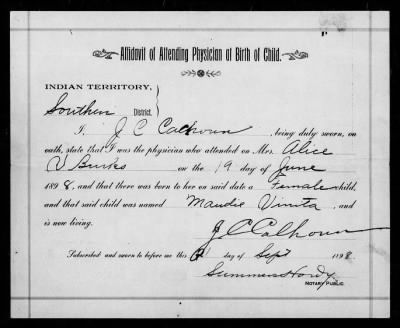 Affidavit of Attending Physician at Birth of Child.
INDIAN TERRITORY,
Southern District.
I, J C Calhoun, being duly sworn, on
oath, state that I was the physician who attended on Mrs. Alice
V Burks on the 19 day of June
1898, and that there was born to her on said date a Female child,
and that said child was named Maudie Vinita, and
is now living.
J C Calhoun
Subscribed and sworn to before me this day of Sept 1898
Summers Hardy
NOTARY PUBLIC.